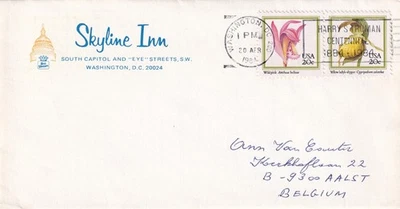 Skyline Inn
SOUTH CAPITOL AND "EYE" STREETS, S.W.
WASHINGTON, D.C. 20024
WASHINGTON, DC
1 PM
20 APR
1984
HARRY S TRUMAN
CENTENNIAL
1884-1984
Wild pink
USA
20c
Yellow lady's-slipper
USA
20c
Ann Van
Kerkhoflaan 22
B-9300 AALST
BELGIUM